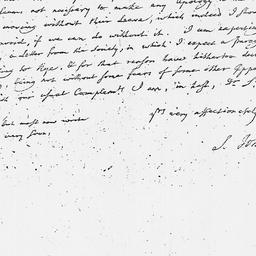 not necessary to make any Apology
moving without their leave, which indeed I
avoid, if we can do without it. I am
a Letter from the Society, in which I expect a
to Rye, & for that reason have hitherto
being not without some fears of some other
our usual Complemts I am, in hast, Dr S.
yrs very affectionately
but must now write
very soon,